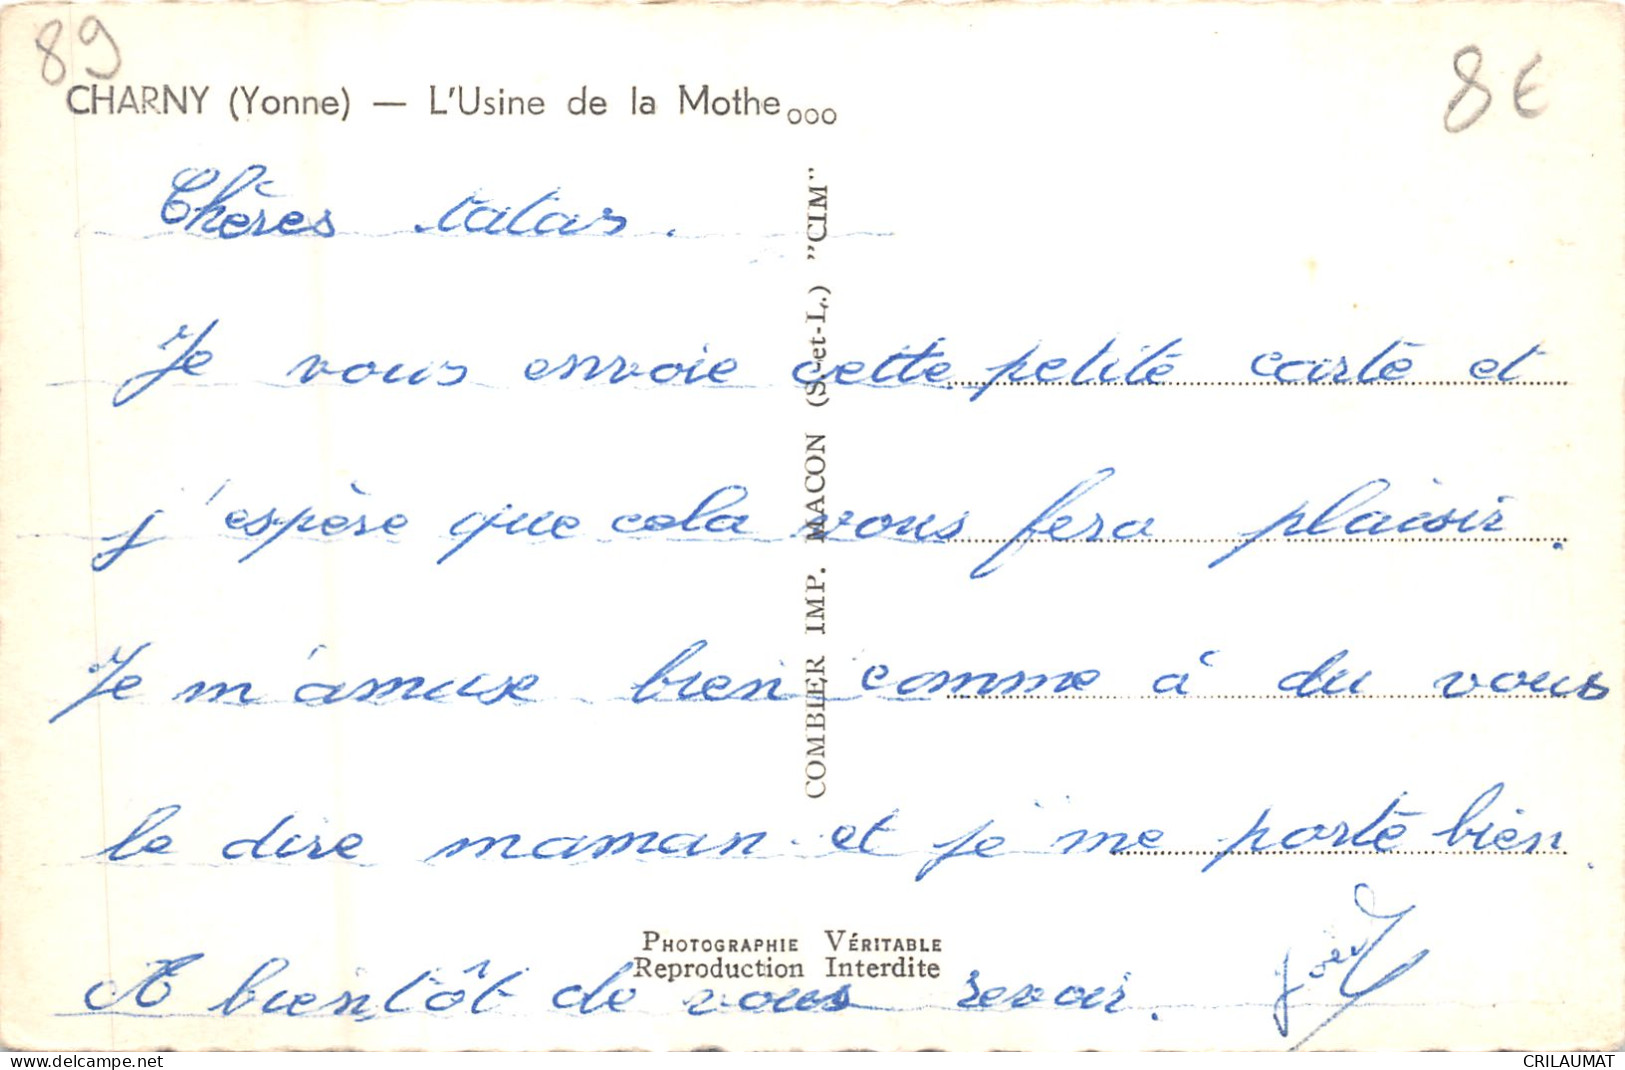 89
8€
CHARNY (Yonne) — L'Usine de la Mothe
Chères tatas.
Je vous envoie cette petite carte et
j'espère que cela vous fera plaisir.
Je m'amuse bien comme à du vous
le dire maman et je me porte bien.
A bientôt de vous revoir.
COMBIER IMP. MACON (S.-et-L.) "CIM"
PHOTOGRAPHIE VÉRITABLE
Reproduction Interdite
www.delcampe.net
CRILAUMAT